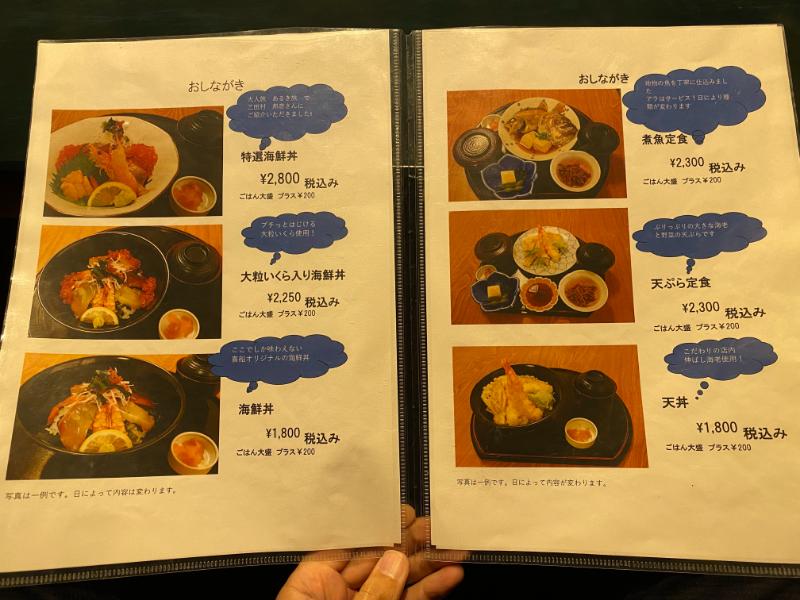 おしながき
大人旅 あるき旅 で
三田村 邦彦さんに
ご紹介いただきました!
特選海鮮丼
¥2,800 税込み
ごはん大盛 プラス¥200
プチっとはじける
大粒いくら使用！
大粒いくら入り海鮮丼
¥2,250 税込み
ごはん大盛 プラス¥200
ここでしか味わえない
喜船オリジナルの海鮮丼
海鮮丼
¥1,800 税込み
ごはん大盛 プラス¥200
写真は一例です。日によって内容は変わります。
おしながき
地物の魚を丁寧に仕込みまし
た
アラはサービス！日により種
類が変わります
煮魚定食
¥2,300 税込み
ごはん大盛 プラス¥200
ぷりっぷりの大きな海老
と野菜の天ぷらです
天ぷら定食
¥2,300 税込み
ごはん大盛 プラス¥200
こだわりの店内
伸ばし海老使用！
天丼
¥1,800 税込み
ごはん大盛 プラス¥200
写真は一例です。日によって内容が変わります。